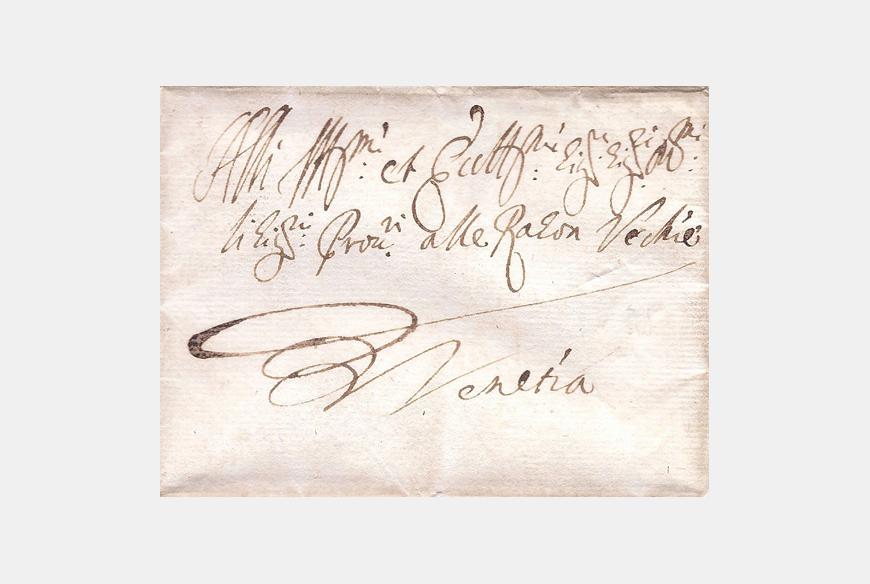 Alli Ill:mi et Ecc:mi Sig:ri Sig:ri
li Sig:ri Prov:ri alle Rason Vechie
Venetia